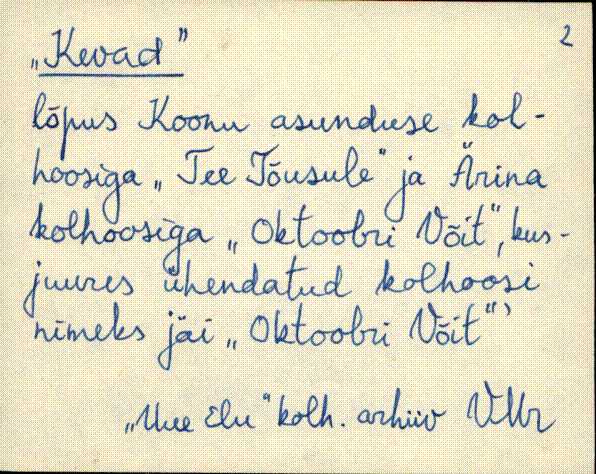 „Kevad" 2
lõpus Koonu asunduse kol-
hoosiga „Tee Tõusule" ja Ärina
kolhoosiga „Oktoobri Võit", kus-
juures ühendatud kolhoosi
nimeks jäi „Oktoobri Võit"
„Uue Elu" kolh. arhiiv VMr